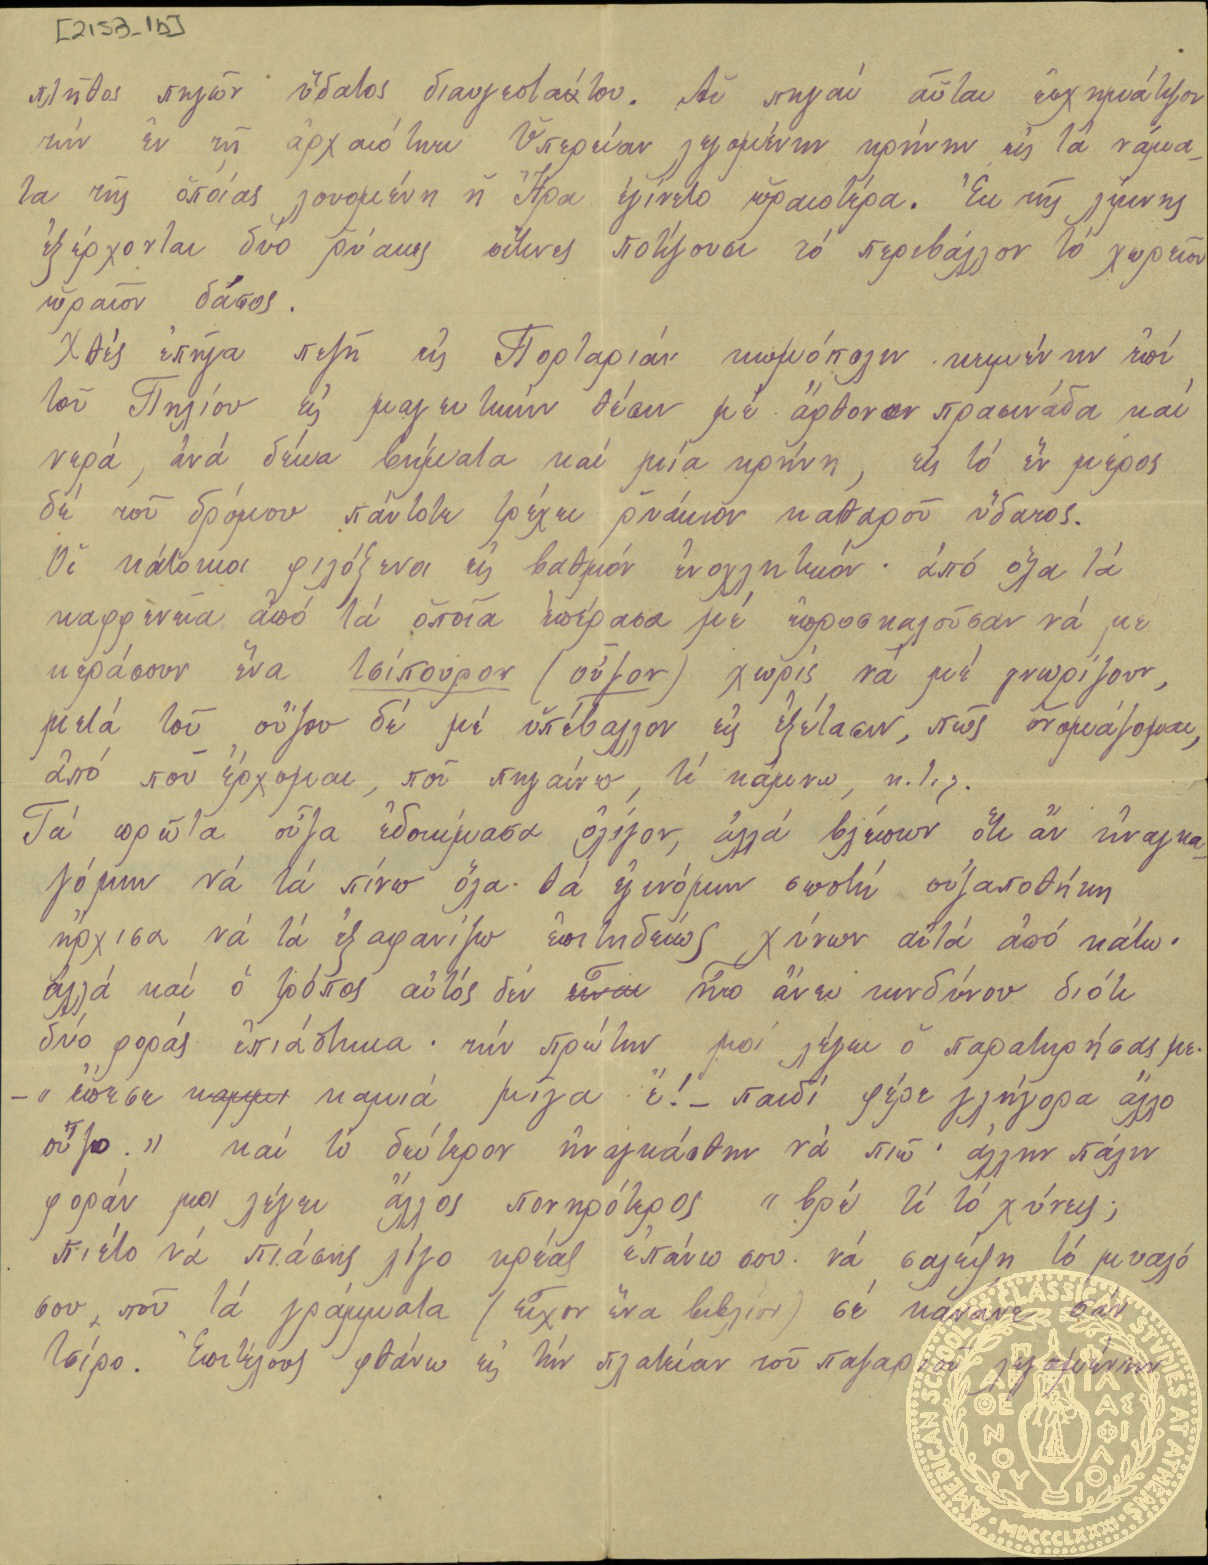 [2153-1b]
πλῆθος πηγῶν ὕδατος διαυγεστάτου. Αἱ πηγαί αὗται ἐσχημάτιζον
τήν ἐν τῇ ἀρχαιότητι Ὑπερείαν λεγομένην κρήνην εἰς τά νάμα-
τα τῆς ὁποίας λουομένη ἡ Ἥρα ἐγίνετο ὡραιοτέρα. Ἐκ τῆς λίμνης
ἐξέρχονται δύο ῥύακες οἵτινες ποτίζουσι τό περιβάλλον τό χωρίον
ὡραῖον δάσος.
Χθές ἐπῆγα πεζῇ εἰς Πορταριάν κωμόπολιν κειμένην ἐπί
τοῦ Πηλίου εἰς μαγευτικήν θέσιν μέ ἄφθονον πρασινάδα καί
νερά, ἀνά δέκα βήματα καί μία κρήνη, εἰς τό ἕν μέρος
δέ τοῦ δρόμου πάντοτε τρέχει ῥυάκιον καθαροῦ ὕδατος.
Οἱ κάτοικοι φιλόξενοι εἰς βαθμόν ἐνοχλητικόν· ἀπό ὅλα τά
καφφενεῖα ἀπό τά ὁποῖα ἐπέρασα μέ ἐπροσκαλοῦσαν νά με
κεράσουν ἕνα τσίπουρον (οὖζον) χωρίς νά μέ γνωρίζουν,
μετά τοῦ οὔζου δέ μέ ὑπέβαλλον εἰς ἐξέτασιν, πῶς ὀνομάζομαι,
ἀπό ποῦ ἔρχομαι, ποῦ πηγαίνω, τί κάμνω, κ.τ.λ.
Τά πρῶτα οὖζα ἐδοκίμασα ὀλίγον, ἀλλά βλέπων ὅτι ἄν ἠναγκα-
ζόμην νά τά πίνω ὅλα θά ἐγινόμην σωστή οὐζαποθήκη
ἤρχισα νά τά ἐξαφανίζω ἐπιτηδείως χύνων αὐτά ἀπό κάτω·
ἀλλά καί ὁ τρόπος αὐτός δέν εἶναι ἦτο ἄνευ κινδύνου διότι
δύο φοράς ἐπιάστηκα· τήν πρώτην μοί λέγει ὁ παρατηρήσας με·
–„ ἔπεσε καμμι καμιά μῖγα ἔ! – παιδί φέρε γλήγορα ἄλλο
οὖζο.” καί τό δεύτερον ἠναγκάσθην νά πιῶ· ἄλλην πάλιν
φοράν μοι λέγει ἄλλος πονηρότερος „ βρέ τί τό χύνεις;
πιέτο νά πιάσῃς λίγο κρέας ἐπάνω σου νά σαλέψῃ τό μυαλό
σου, ποῦ τά γράμματα (εἶχον ἕνα βιβλίον) σέ κάνανε σάν
τσίρο. Ἐπιτέλους φθάνω εἰς τήν πλατεῖαν τοῦ παζαριοῦ λεγομένην
AMERICAN SCHOOL OF CLASSICAL STUDIES AT ATHENS · MDCCCLXXXI ·